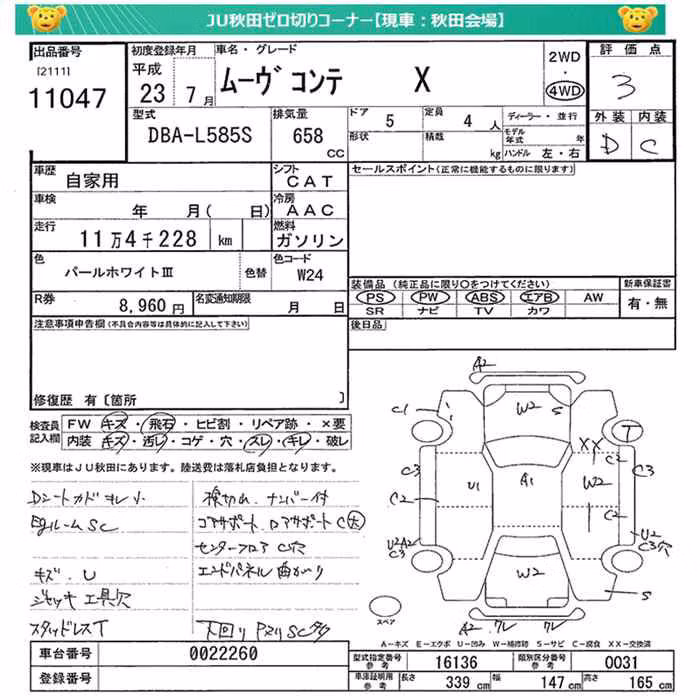 JU秋田ゼロ切りコーナー【現車：秋田会場】
出品番号
[2111]
11047
初度登録年月
平成
23 7 月
車名・グレード
ムーヴ コンテ X
2WD
・
4WD
評価点
3
外装 内装
D C
型式
DBA-L585S
排気量
658
CC
ドア 5
定員 4 人
形状
積載
kg
ディーラー・並行
モデル年式 年
ハンドル 左・右
車歴
自家用
シフト
CAT
車検
年 月( 日)
冷房
AAC
走行
11万4千228 km
燃料
ガソリン
色
パールホワイトⅢ
色替
色コード
W24
R券
8,960 円
名変通知期限
月 日
セールスポイント(正常に機能するものに限ります)
装備品 (純正品に限り○をつけてください)
PS PW ABS エアB AW
SR ナビ TV カワ
新車保証書
有・無
注意事項申告欄(不具合内容等は具体的に記入して下さい)
後日品
修復歴 有〔箇所 〕
検査員記入欄
FW キズ・飛石・ヒビ割・リペア跡・×要
内装 キズ・汚レ・コゲ・穴・スレ・キレ・破レ
※現車はJU秋田にあります。陸送費は落札店負担となります。
Dシートカド キレ小
ルームSC
キズ.U
ジャッキ 工具欠
スタッドレスT
検切れ.ナンバー付
コアサポート.ロアサポートC大
センターフロアC穴
エンドパネル曲がり
下回り
A2
C1
W2 S
T
XX C2
C3
C3
C2
U1
A1
W2
C2
U2A2
C3
U2
C3穴
W2
S
A2 クレ クレ
スペア
A-キズ E-エクボ U-凹み W-補修跡 S-サビ C-腐食 XX-交換済
車台番号
0022260
登録番号
型式指定番号
参考
16136
類別区分番号
参考
0031
車庫証明用
参考
長さ 339 cm
幅 147 cm
高さ 165 cm